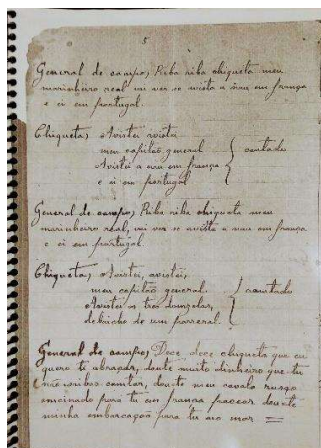 5
General de campo, Riba riba chiqueta meu
marinheiro real vai ver se avista a nau em frança
e ei em portugal.
Chiqueta, Avistei avistei
meu capitão general
Avistei a nau em frança
e ei em portugal
cantado
General de campo, Riba riba chiqueta meu
marinheiro real, vai ver se avista a nau em frança
e ei em portugal.
Chiqueta, Avistei, avistei,
meu capitão general.
Avistei as tres donzelas,
debaicho de um parreral.
cantado
General de campo, Dece dece chiqueta que eu
quero te abraçar, doute muito dinheiro que tu
não sabes contar, doute meu cavalo ruço
encinado para tu em frança passear doute
minha embarcação para tu ao mar